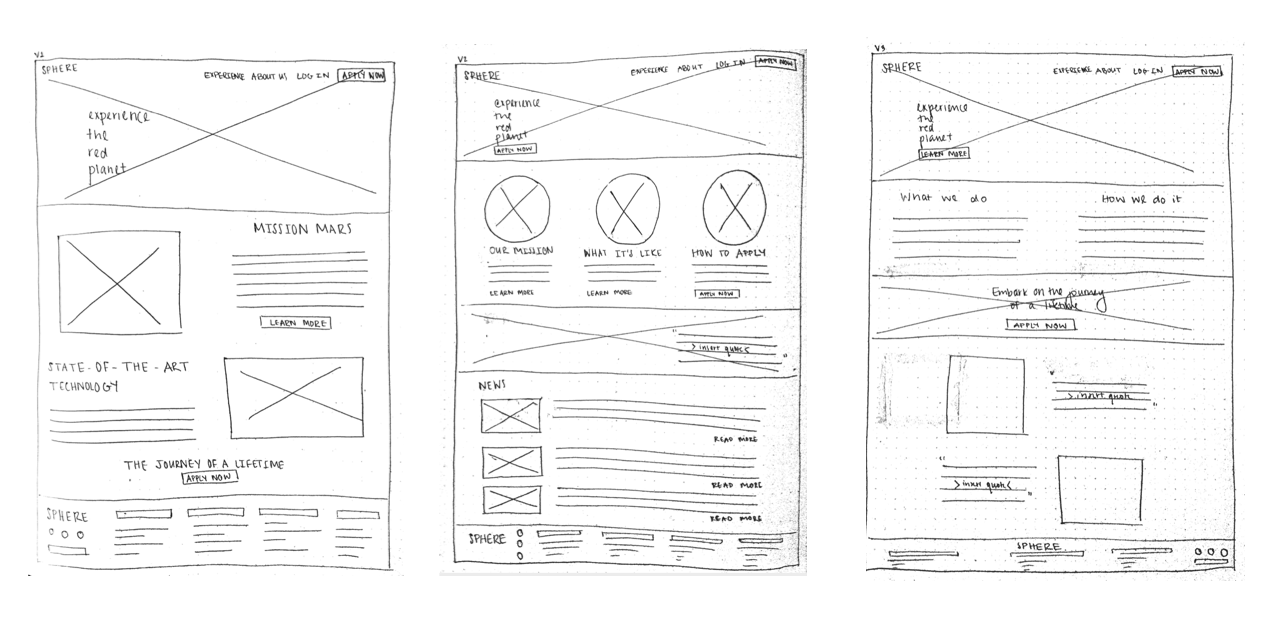 V1
SPHERE
EXPERIENCE ABOUT US LOG IN APPLY NOW
experience
the
red
planet
MISSION MARS
LEARN MORE
STATE-OF-THE-ART
TECHNOLOGY
THE JOURNEY OF A LIFETIME
APPLY NOW
SPHERE
V2
SPHERE
EXPERIENCE ABOUT LOG IN APPLY NOW
experience
the
red
planet
APPLY NOW
OUR MISSION
WHAT IT'S LIKE
HOW TO APPLY
LEARN MORE
LEARN MORE
APPLY NOW
"
> insert quote <
"
NEWS
READ MORE
READ MORE
READ MORE
SPHERE
V3
SPHERE
EXPERIENCE ABOUT LOG IN APPLY NOW
experience
the
red
planet
LEARN MORE
What we do
How we do it
Embark on the journey
of a lifetime
APPLY NOW
"
> insert quote
"
"
> insert quote <
"
SPHERE